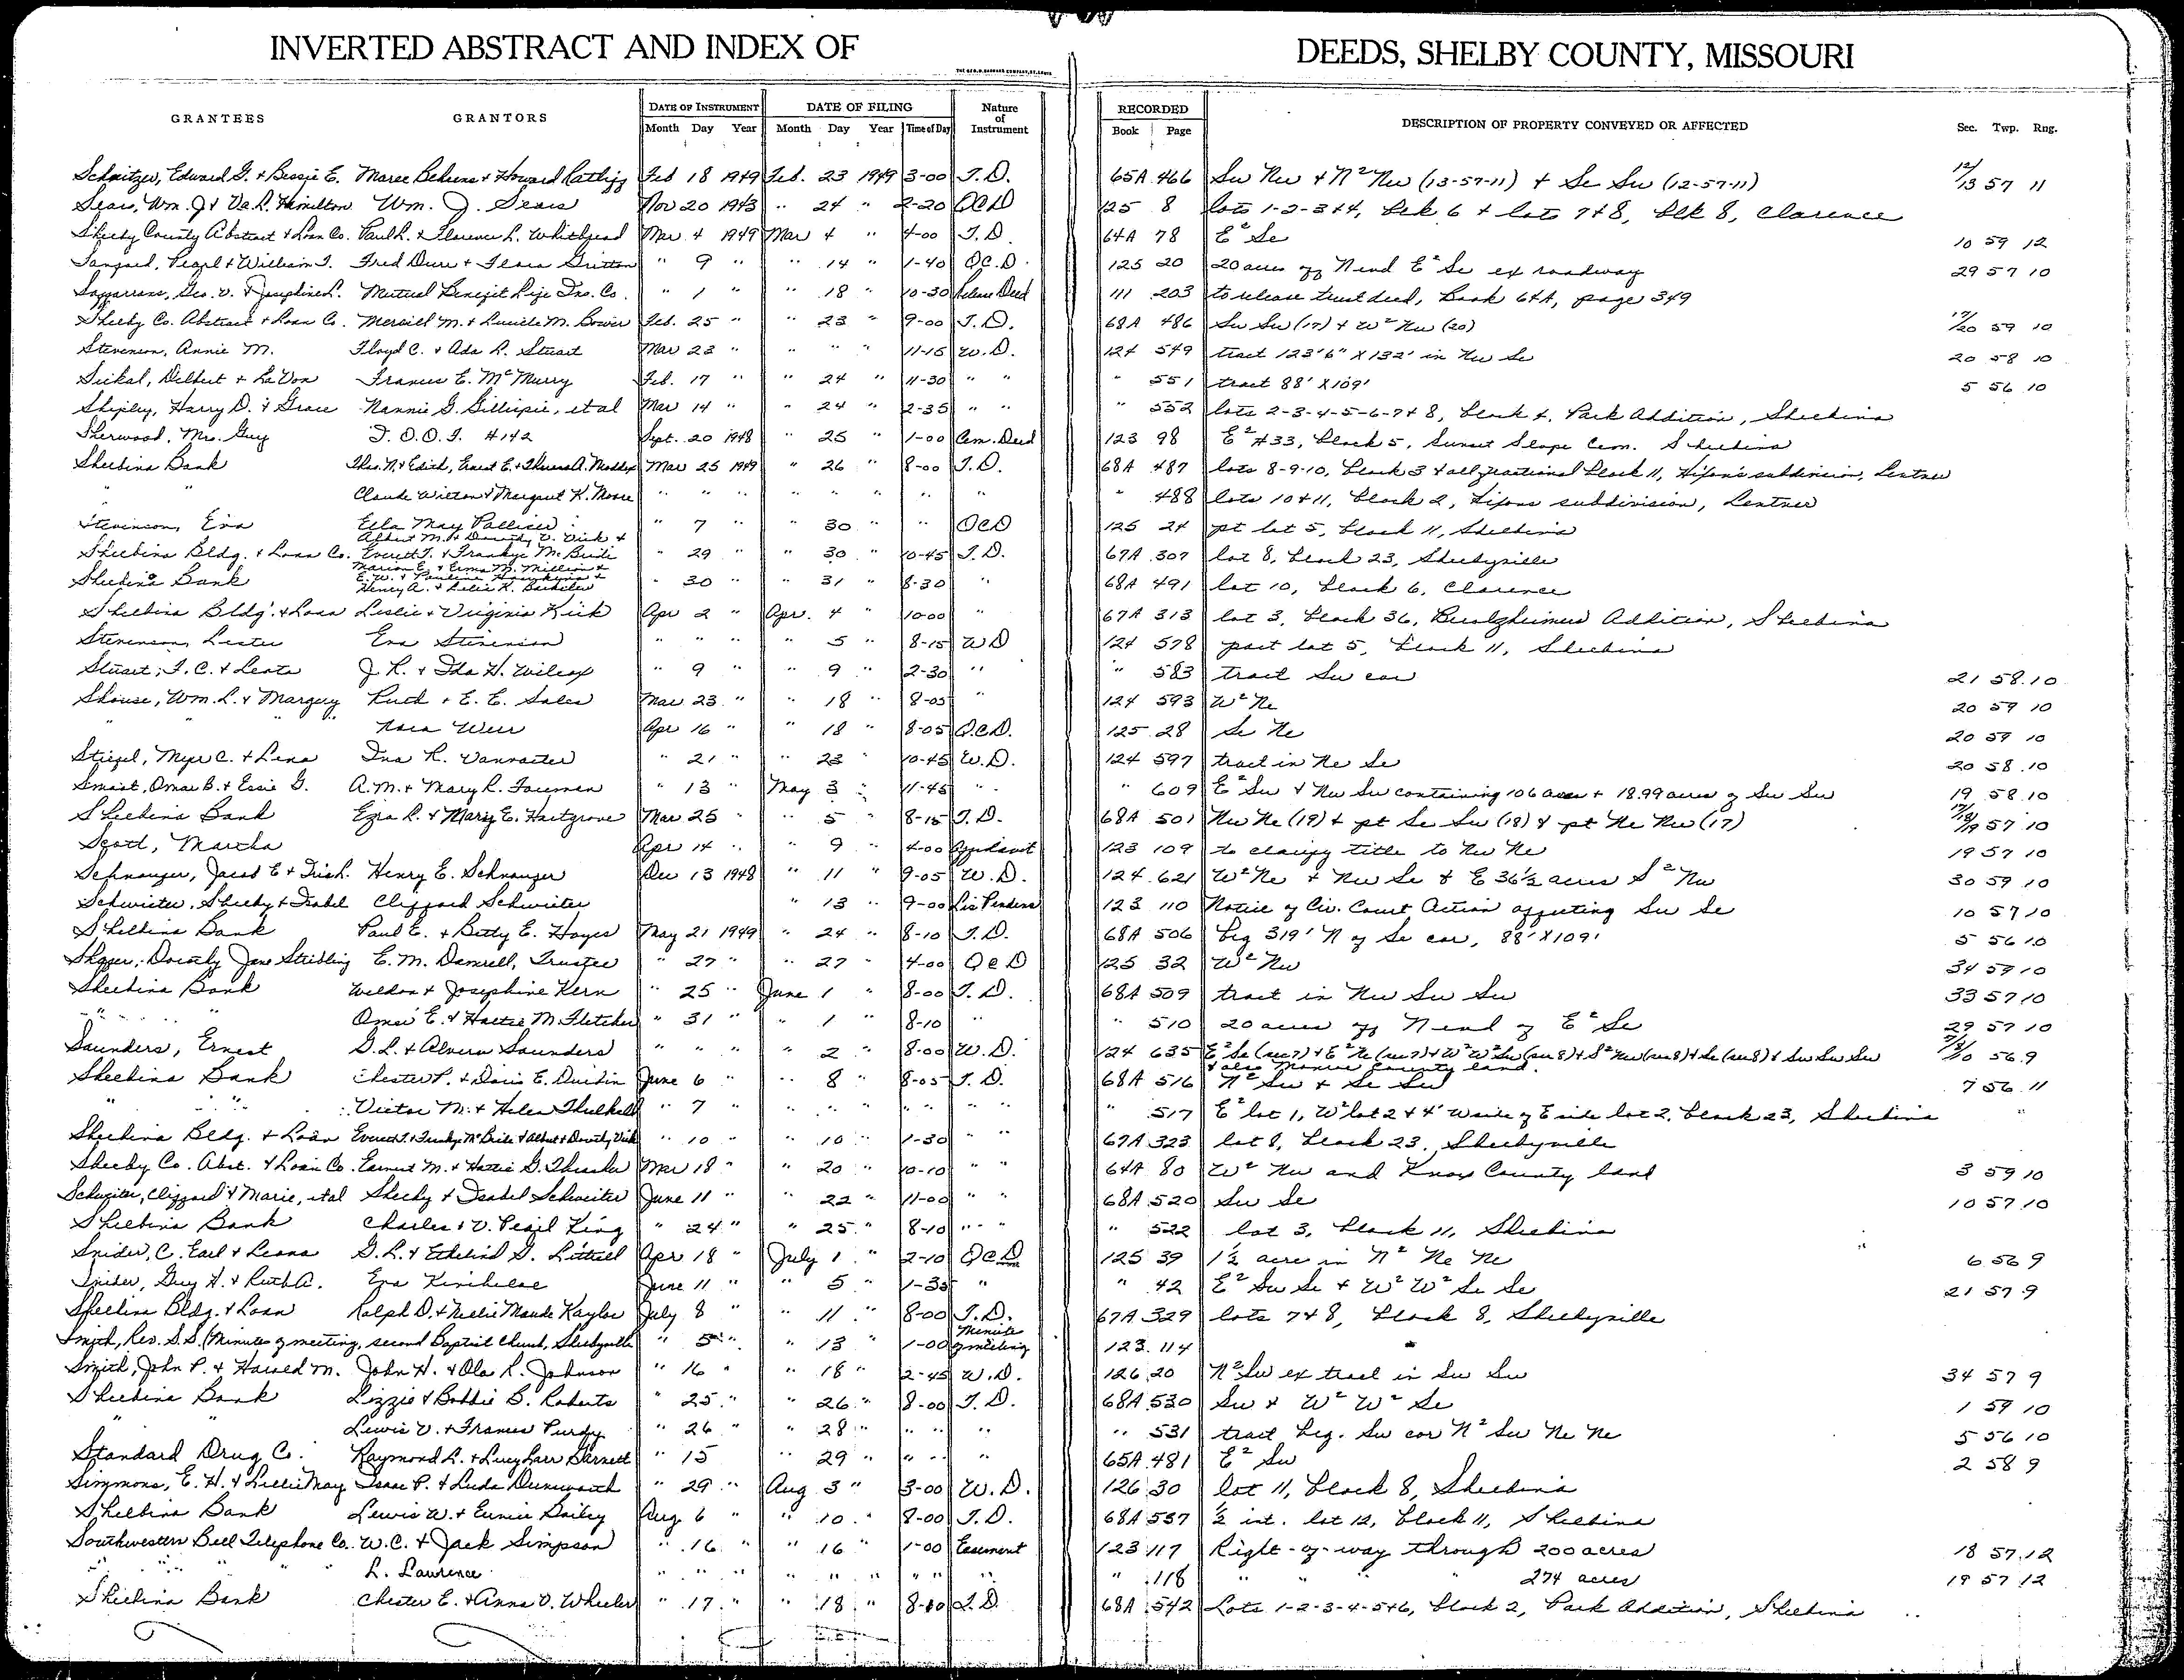 INVERTED ABSTRACT AND INDEX OF DEEDS, SHELBY COUNTY, MISSOURI
GRANTEES GRANTORS DATE OF INSTRUMENT DATE OF FILING Nature of Instrument RECORDED DESCRIPTION OF PROPERTY CONVEYED OR AFFECTED Sec. Twp. Rng.
Month Day Year Month Day Year Time of Day Book Page
Edward G. + Bessie E. Maree Behrens + Howard Feb 18 1949 Feb. 23 1949 3-00 T.D. 65A 466 Sw Nw + N² Nw (13-57-11) + Se Sw (12-57-11) 12/13 57 11
Sears, Wm. J + Va. L. Hamilton Wm. J. Sears Nov 20 1943 " 24 " 2-20 QCD 125 8 lots 1-2-3+4, blk 6 + lots 7+8, blk 8, Clarence
Shelby County Abstract + Loan Co. Paul L. + Florence L. Whitehead Mar 4 1949 Mar 4 " 4-00 T.D. 64A 78 E² Se 10 59 12
Pearl + William T. Fred Durr + Flora Gritton " 9 " " 14 " 1-40 QC.D. 125 20 20 acres off N end E² Se ex roadway 29 57 10
Geo. V. + Josephine L. Mutual Benefit Life Ins. Co. " 1 " " 18 " 10-30 Release Deed 111 203 to release trust deed, Book 64A, page 349
Shelby Co. Abstract + Loan Co. Merrill M. + Lucille M. Bower Feb. 25 " " 23 " 9-00 T.D. 68A 486 Sw Sw (17) + W² Nw (20) 17/20 59 10
Stevenson, Annie M. Floyd C. + Ada L. Stuart Mar 23 " " " " 11-15 W.D. 124 549 tract 123'6" X 132' in Nw Se 20 58 10
Sickal, Delbert + LaVon Frances E. McMurry Feb. 17 " " 24 " 11-30 " " " 551 tract 88' X 109' 5 56 10
Shipley, Harry D. + Grace Nannie G. Gillispie, et al Mar 14 " " 24 " 2-35 " " " 552 lots 2-3-4-5-6-7+8, block 4, Park Addition, Shelbina
Sherwood, Mrs. Guy I.O.O.F. #142 Sept. 20 1948 " 25 " 1-00 Cem. Deed 123 98 E² #33, block 5, Sunset Slope Cem. Shelbina
Shelbina Bank Thos. N. + Edith, Ernest E. + Theresa A. Maddox Mar 25 1949 " 26 " 8-00 T.D. 68A 487 lots 8-9-10, block 3 + all fractional block 11, Hixon's subdivision, Lentner
" " Claude Wilton + Margaret K. Moore " " " " " " " " " 488 lots 10+11, block 2, Hixons subdivision, Lentner
Stevenson, Eva Ella May Pollicer " 7 " " 30 " " QCD 125 24 pt lot 5, block 11, Shelbina
Albert M. + Dorothy V. Vick +
Shelbina Bldg. + Loan Co. Everett T. + Frankye McBride " 29 " " 30 " 10-45 T.D. 67A 307 lot 8, block 23, Shelbyville
Marion E. + Erma M. Million +
E. W. + Pauline Hawkins +
Shelbina Bank Henry A. + Lelia K. Bachelor " 30 " " 31 " 8-30 " 68A 491 lot 10, block 6, Clarence
Shelbina Bldg. + Loan Leslie + Virginia Kirk Apr 2 " Apr. 4 " 10-00 " 67A 313 lot 3, block 36, Addition, Shelbina
Stevenson, Lester Eva Stevenson " " " " 5 " 8-15 WD 124 578 part lot 5, block 11, Shelbina
Stuart, F. C. + Leota J. R. + Ida H. Wilcox " 9 " " 9 " 2-30 " " 583 tract Sw cor 21 58 10
Shouse, Wm. L. + Margery Ruth + E. E. Sales Mar 23 " " 18 " 8-05 " 124 593 W² Ne 20 59 10
" " " Nora Weir Apr 16 " " 18 " 8-05 Q.C.D. 125 28 Se Ne 20 59 10
Myer C. + Lena Ina R. Vanvacter " 21 " " 23 " 10-45 W.D. 124 597 tract in Ne Se 20 58 10
Smart, Omar B. + Essie G. A. M. + Mary L. Foreman " 13 " May 3 " 11-45 " " 609 E² Sw + Nw Sw containing 106 acres + 18.99 acres of Sw Sw 19 58 10
Shelbina Bank Ezra L. + Mary E. Hartgrove Mar 25 " " 5 " 8-15 T.D. 68A 501 Nw Ne (19) + pt Se Sw (18) + pt Ne Nw (17) 17/18/19 57 10
Scott, Martha Apr 14 " " 9 " 4-00 Affidavit 123 109 to clarify title to Nw Ne 19 57 10
Schnauzer, Jacob E + Trish. Henry E. Schnauzer Dec 13 1948 " 11 " 9-05 W.D. 124 621 W² Ne + Nw Se + E 36½ acres S² Nw 30 59 10
Schwieter, Shelby + Isabel Clifford Schwieter " 13 " 9-00 Lis Pendens 123 110 Notice of Civ. Court Action affecting Sw Se 10 57 10
Shelbina Bank Paul E. + Betty E. Hayes May 21 1949 " 24 " 8-10 T.D. 68A 506 beg 319' N of Se cor, 88' X 109' 5 56 10
Dorothy Jane Stribling E. M. Damrell, Trustee " 27 " " 27 " 4-00 QCD 125 32 W² Nw 34 59 10
Shelbina Bank Weldon + Josephine Kern " 25 " June 1 " 8-00 T.D. 68A 509 tract in Nw Sw Sw 33 57 10
" " Omar E. + Hattie M. Fletcher " 31 " " 1 " 8-10 " " 510 20 acres off N end of E² Se 29 57 10
Saunders, Ernest G. L. + Alvera Saunders " " " " 2 " 8-00 W.D. 124 635 E² Se (sec 7) + E² Ne (sec 7) + W² W² Sw (sec 8) + S² Nw (sec 8) + Se (sec 8) + Sw Sw Sw 56 9
+ also Monroe County land.
Shelbina Bank Chester P. + Doris E. Durbin June 6 " " 8 " 8-05 T.D. 68A 516 N² Sw + Se Sw 7 56 11
" " Victor M. + Helen Thelkeld " 7 " " " " " " " 517 E² lot 1, W² lot 2 + 4' wide of E side lot 2, block 23, Shelbina "
Shelbina Bldg. + Loan Everett T. + Frankye McBride + Albert + Dorothy Vick " 10 " " 10 " 1-30 " " 67A 323 lot 8, block 23, Shelbyville
Shelby Co. Abst. + Loan Co. Earnest M. + Hattie G. Thrasher Mar 18 " " 20 " 10-10 " " 64A 80 W² Nw and Knox County land 3 59 10
Schwieter, Clifford + Marie, et al Shelby + Isabel Schwieter June 11 " " 22 " 11-00 " " 68A 520 Sw Se 10 57 10
Shelbina Bank Charles + V. Pearl King " 24 " " 25 " 8-10 " " " 522 lot 3, block 11, Shelbina "
Snider, C. Earl + Leona G. L. + Ethelind G. Littrell Apr 18 " July 1 " 2-10 QCD 125 39 1½ acre in N² Ne Ne 6 56 9
Snider, Guy H. + Ruth A. Eva Kincheloe June 11 " " 5 " 1-35 " " 42 E² Sw Se + W² W² Se Se 21 57 9
Shelbina Bldg. + Loan Ralph D. + Nellie Maude Kaylor July 8 " " 11 " 8-00 T.D. 67A 329 lots 7+8, block 8, Shelbyville
Smith, Rev. S. S. (Minutes of meeting, second Baptist Church, Shelbyville " 5 " " 13 " 1-00 Minute of meeting 123 114
Smith, John P. + Harold M. John H. + Ola L. Johnson " 16 " " 18 " 2-45 W.D. 126 20 N² Sw ex tract in Sw Sw 34 57 9
Shelbina Bank Lizzie + Bobbie B. Roberts " 25 " " 26 " 8-00 T.D. 68A 530 Sw + W² W² Se 1 59 10
" " Lewis V. + Frances Purdy " 26 " " 28 " " " " " 531 tract beg. Sw cor N² Sw Ne Ne 5 56 10
Standard Drug Co. Raymond L. + Lucy Barnett " 15 " 29 " " " 65A 481 E² Sw 2 58 9
Simmons, E. H. + Lillie May Isaac P. + Luda Dunsworth " 29 " Aug 3 " 3-00 W.D. 126 30 lot 11, block 8, Shelbina
Shelbina Bank Lewis W. + Eunice Bailey Aug. 6 " " 10 " 8-00 T.D. 68A 537 ½ int. lot 12, block 11, Shelbina
Southwestern Bell Telephone Co. W. C. + Jack Simpson " 16 " " 16 " 1-00 Easement 123 117 Right-of-way through 200 acres 18 57 12
" " " " L. Lawrence " " " " " " " " " " 118 " " " 274 acres 19 57 12
Shelbina Bank Chester E. + Anna V. Wheeler " 17 " " 18 " 8-10 T.D. 68A 542 Lots 1-2-3-4-5+6, block 2, Park Addition, Shelbina